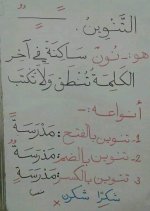 التَّنْوِينُ.
هو:- نُونٌ سَاكِنَةٌ في آخِرِ
الكَلِمَةِ تُنْطَقُ وَلَا تُكْتَبُ
أنواعه:-
1- تنوين بالفتح: مَدْرَسَةً
2- تنوين بالضم: مَدْرَسَةٌ
3- تنوين بالكسر: مَدْرَسَةٍ
شكرًا شكرن